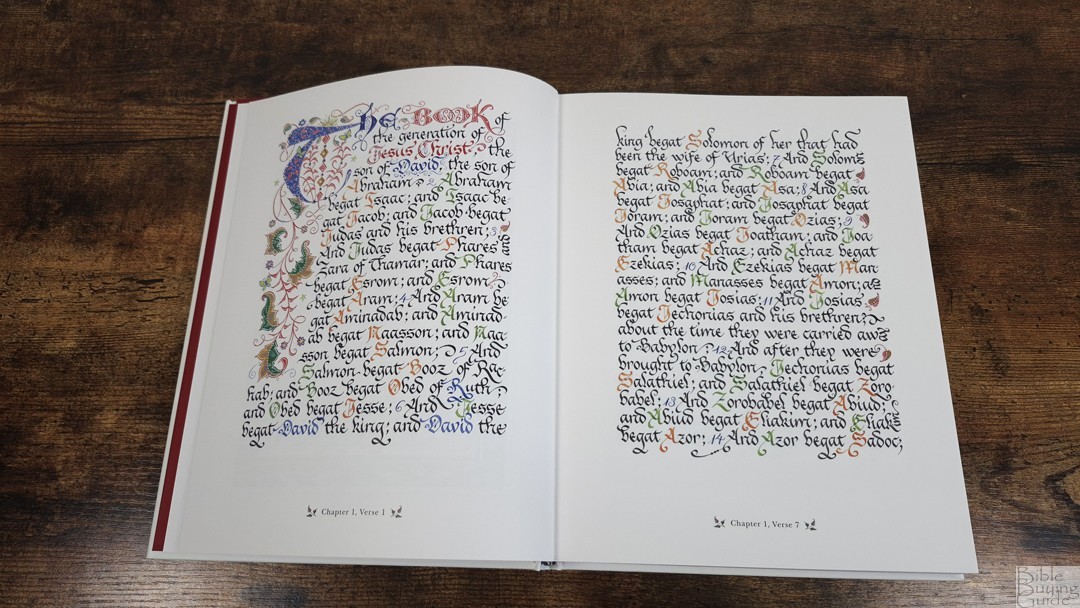 THE BOOK of
the generation of
Jesus Christ, the
son of David, the son of
Abraham. 2 Abraham
begat Isaac; and Isaac be
gat Jacob; and Jacob begat
Judas and his brethren; 3
And Judas begat Phares &
Zara of Thamar; and Phares
begat Esrom; and Esrom
begat Aram; 4 And Aram be
gat Aminadab; and Aminad
ab begat Naasson; and Naa
sson begat Salmon; 5 And
Salmon begat Booz of Rac
hab; and Booz begat Obed of Ruth;
and Obed begat Jesse; 6 And Jesse
begat David the king; and David the
Chapter 1, Verse 1
king begat Solomon of her that had
been the wife of Urias; 7 And Solomon
begat Roboam; and Roboam begat
Abia; and Abia begat Asa; 8 And Asa
begat Josaphat; and Josaphat begat
Joram; and Joram begat Ozias; 9
And Ozias begat Joatham; and Joa
tham begat Achaz; and Achaz begat
Ezekias; 10 And Ezekias begat Man
asses; and Manasses begat Amon; &
Amon begat Josias; 11 And Josias
begat Jechonias and his brethren,
about the time they were carried away
to Babylon: 12 And after they were
brought to Babylon, Jechonias begat
Salathiel; and Salathiel begat Zoro
babel; 13 And Zorobabel begat Abiud;
and Abiud begat Eliakim; and Eliakim
begat Azor; 14 And Azor begat Sadoc;
Chapter 1, Verse 7
Bible
Buying
Guide